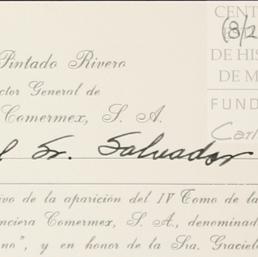 CENT
(8/2
DE HIS
DE M
FUND
Carl
Pintado Rivero
ctor General de
Comermex, S. A.
l Sr. Salvador
ivo de la aparición del IV Tomo de la
nciera Comermex, S. A., denominad
no", y en honor de la Sra. Graciel